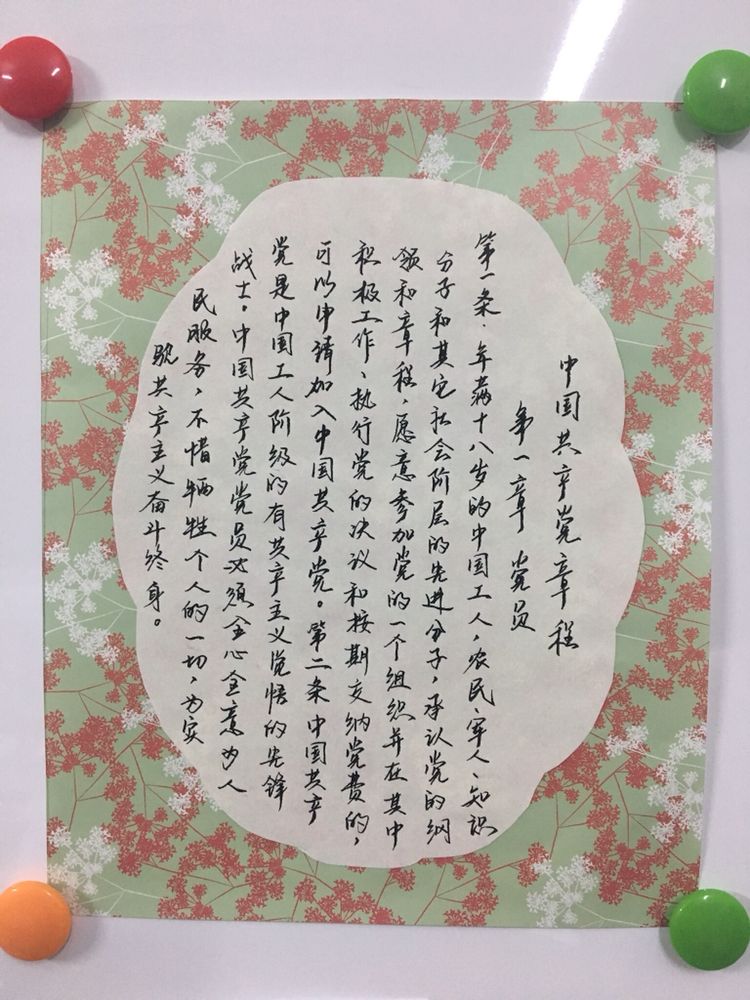 中国共产党章程
第一章 党员
第一条、年满十八岁的中国工人，农民、军人、知识
分子和其它社会阶层的先进分子，承认党的纲
领和章程，愿意参加党的一个组织并在其中
积极工作、执行党的决议和按期交纳党费的，
可以申请加入中国共产党。第二条中国共产
党是中国工人阶级的有共产主义觉悟的先锋
战士。中国共产党党员必须全心全意为人
民服务，不惜牺牲个人的一切，为实
现共产主义奋斗终身。